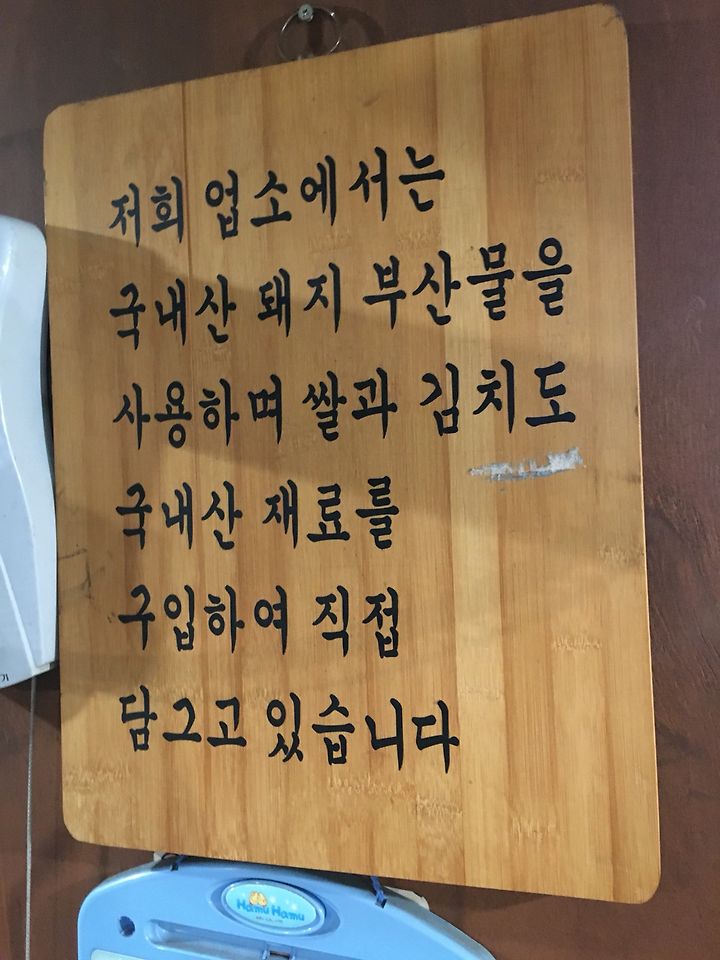 저희 업소에서는
국내산 돼지 부산물을
사용하며 쌀과 김치도
국내산 재료를
구입하여 직접
담그고 있습니다
기
Hamu Hamu